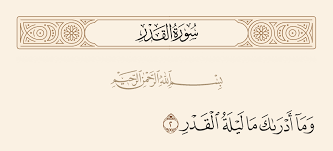 سُورَةُ القَدۡرِ
بِسۡمِ ٱللَّهِ ٱلرَّحۡمَٰنِ ٱلرَّحِيمِ
وَمَآ أَدۡرَىٰكَ مَا لَيۡلَةُ ٱلۡقَدۡرِ ٢